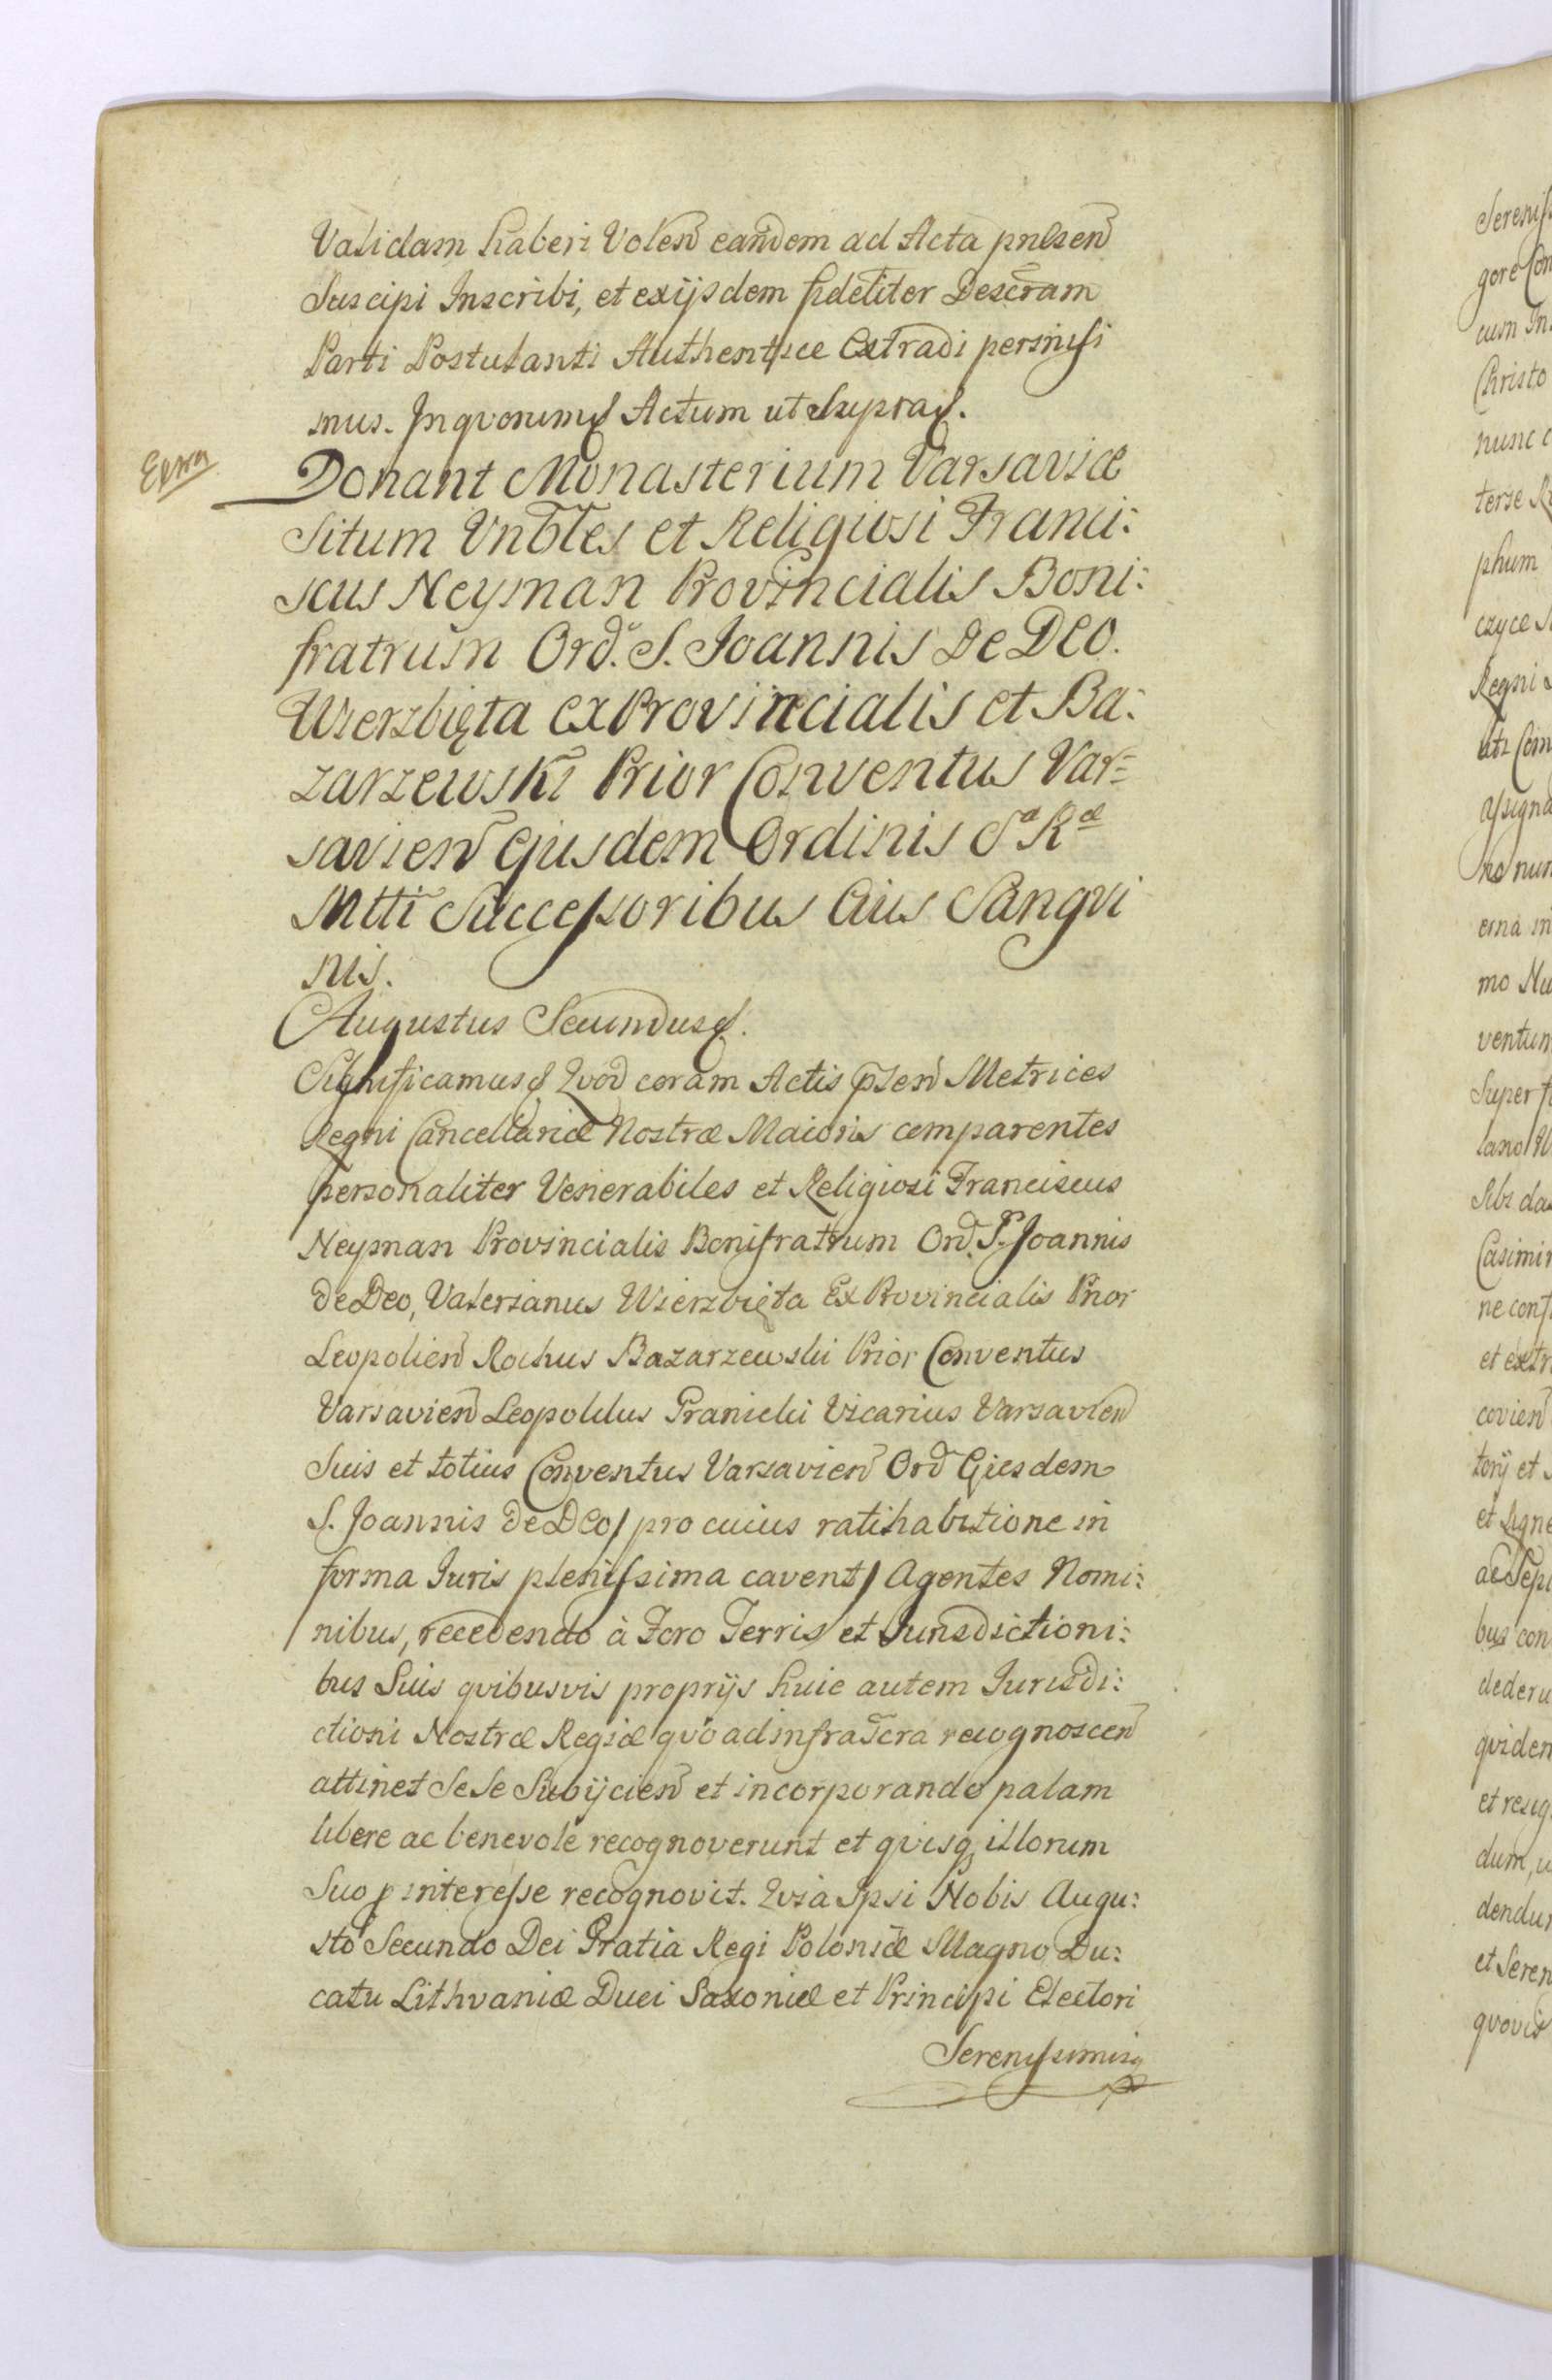 Validam haberi Voleñ eañdem ad Acta pnlseñ
Suscipi Inscribi, et exijsdem fideliter Descrãm
Parti Postulanti Authentice Extradi permisi
mus. In quorum &c. Actum ut Supra &c.
Extra
Donant Monasterium Varsaviæ
Situm Vnbłes et Religiosi Franci:
scus Neyman Provincialis Boni:
fratrum Ord. S. Joannis De Deo.
Wierzbięta ExProvincialis et Ba:
zarzewski Prior Conventus Var=
savieñ Ejusdem Ordinis Sᵃ Rᵃᵉ
Mtti Successoribus Eius Sangvi
nis.
Augustus Secundus &c.
Significamus &c. Quod coram Actis pñseñ Metrices
Regni Cancellariæ Nostræ Maioris comparentes
personaliter Venerabiles et Religiosi Franciscus
Neyman Provincialis Bonifratrum Ord. S. Joannis
de Deo, Valerianus Wierzbięta Ex Provincialis Prior
Leopolieñ Rochus Bazarzewski Prior Conventus
Varsavieñ Leopoldus Granicki Vicarius Varsavieñ
Suis et totius Conventus Varsavieñ Ord Ejusdem
S. Joannis de Deo / pro cuius ratihabitione in
forma Iuris plenissima cavent / Agentes Nomi:
nibus, recedendo à Foro Terris et Iurisdictioni:
bus Suis qvibusvis proprijs huic autem Iurisdi:
ctioni Nostræ Regiæ qvoad infraScra recognosceñ
attinet SeSe Subijcieñ et incorporando palam
libere ac benevole recognoverunt et qvisq illorum
Suo p interesse recognovit. Qvia Ipsi Nobis Augu:
sto Secundo Dei Gratia Regi Poloniæ Magno Du:
catu Lithvaniæ Duci Saxoniæ et Principi Electori
Serenissimisq